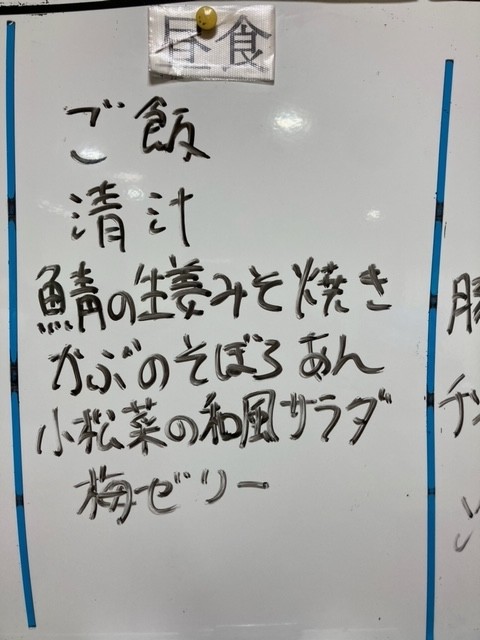 昼食
ご飯
清汁
鯖の生姜みそ焼き
かぶのそぼろあん
小松菜の和風サラダ
梅ゼリー